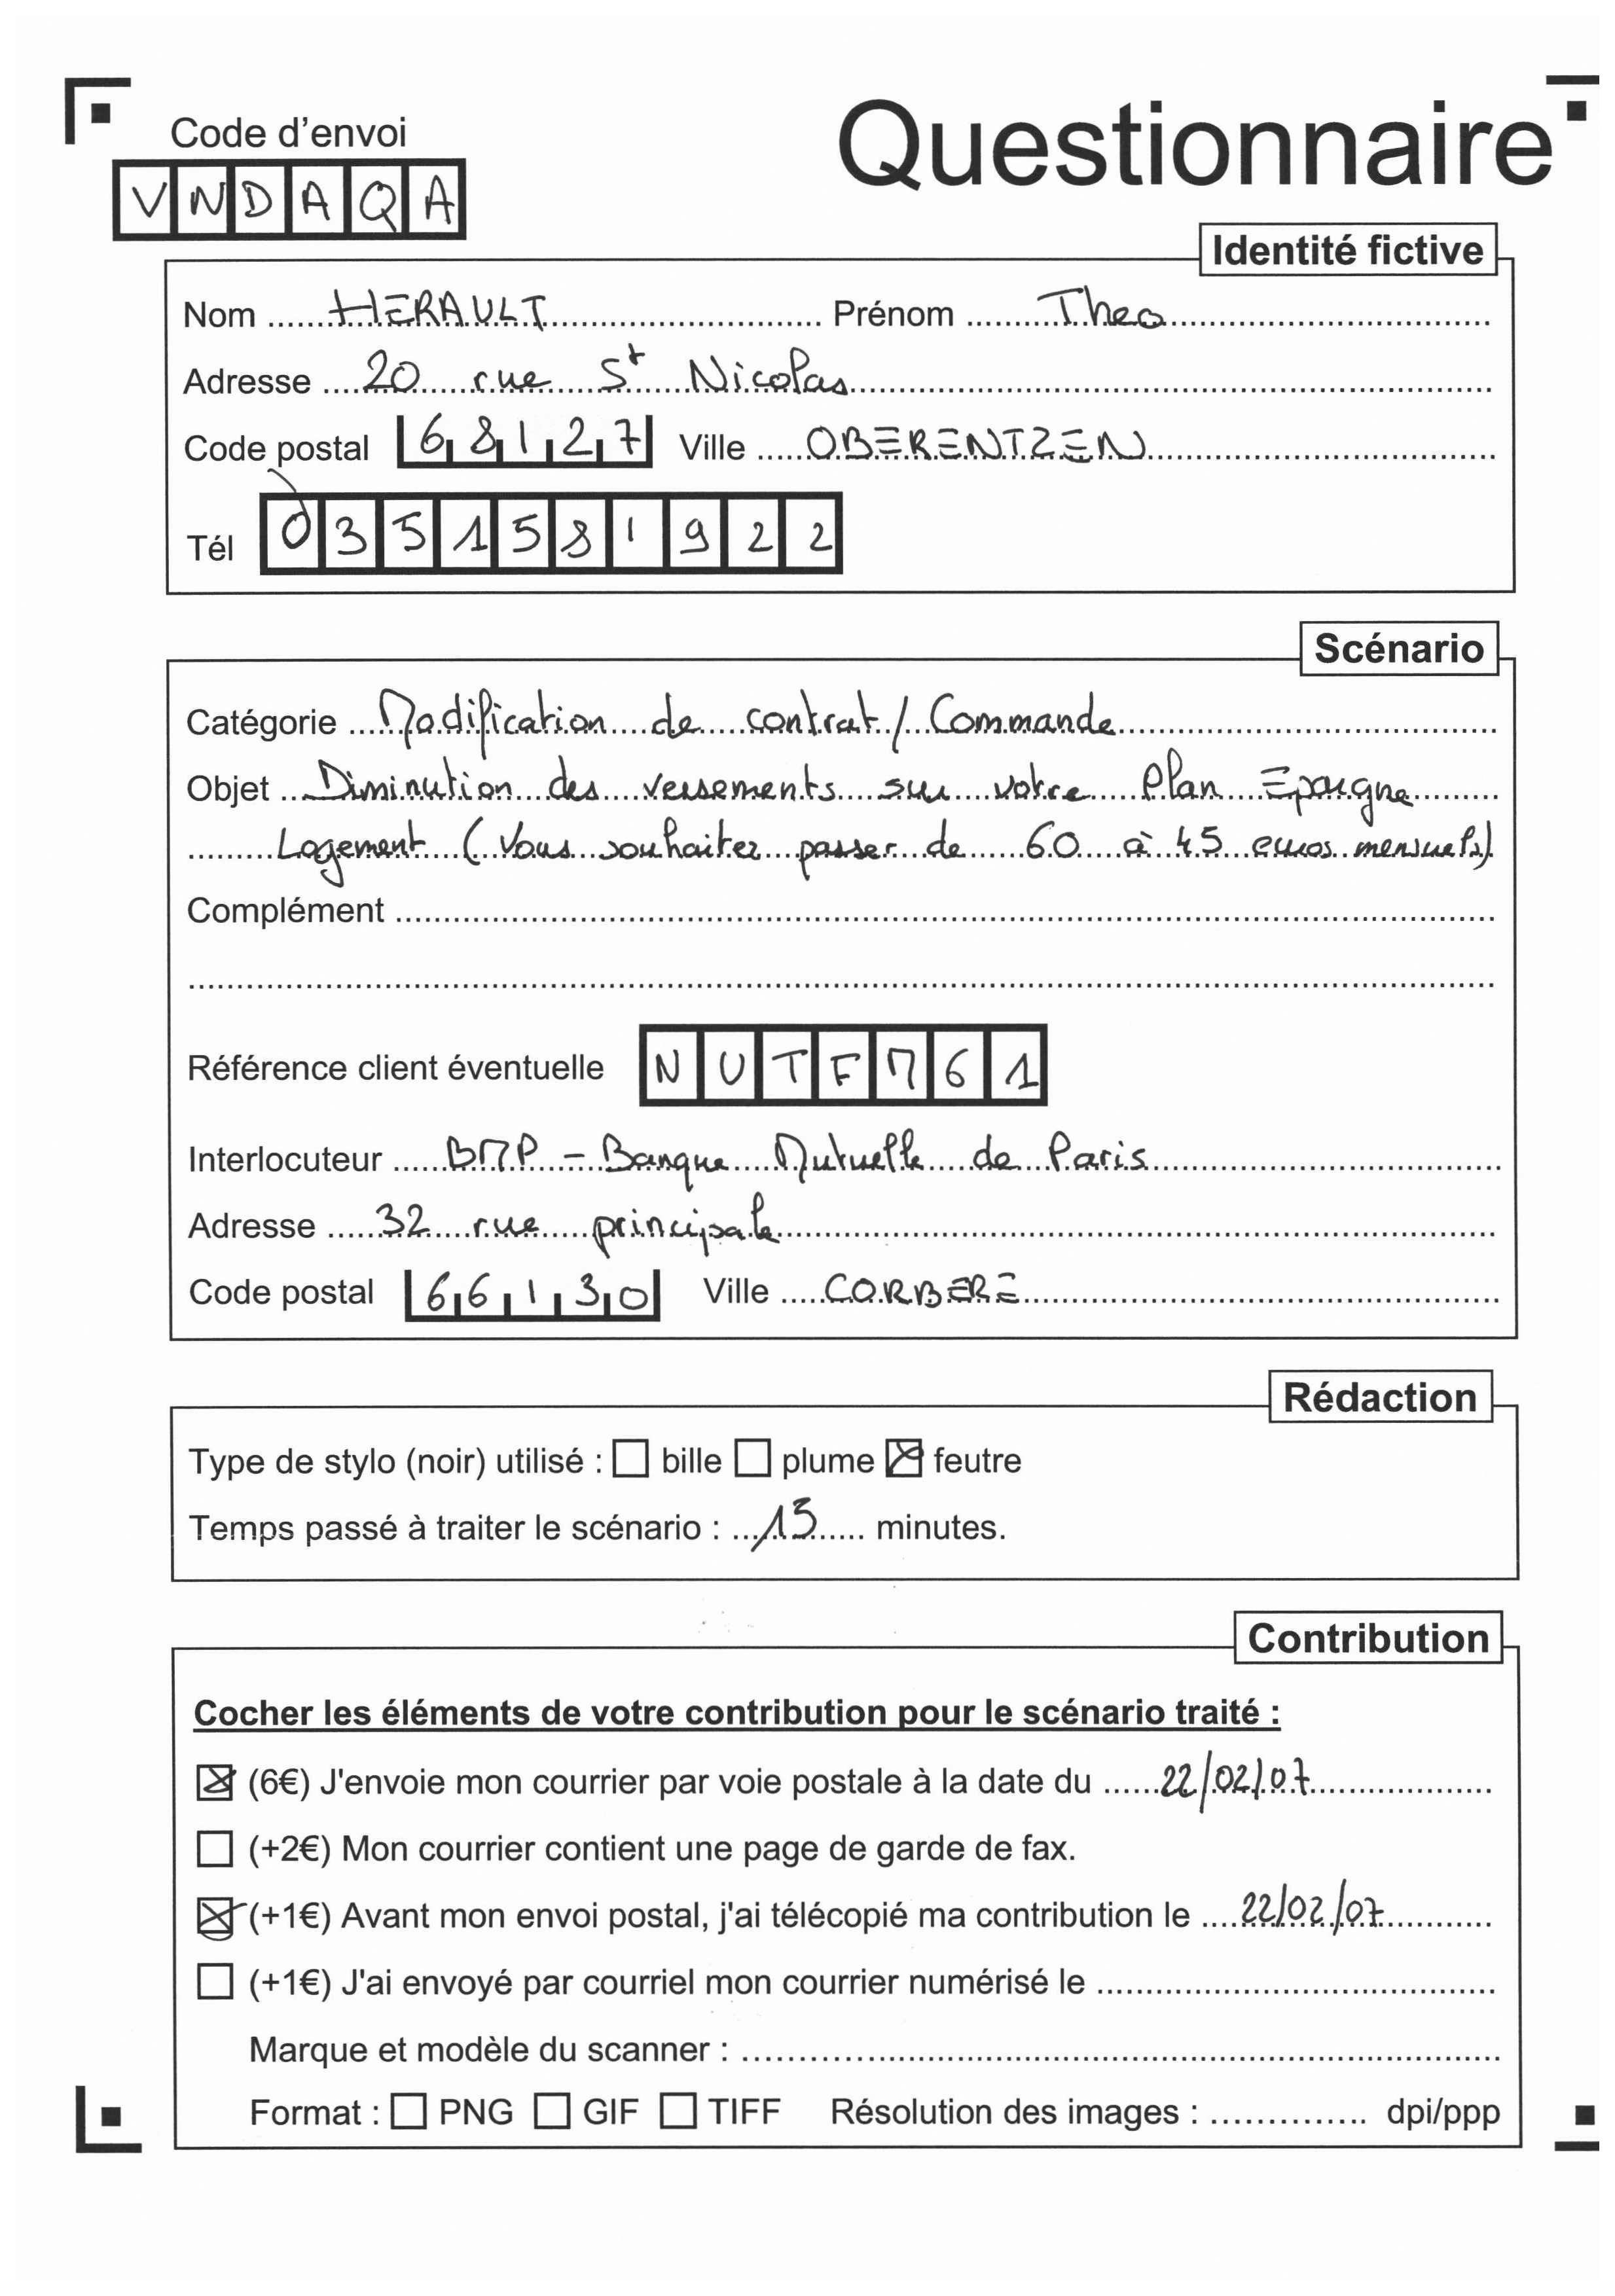 Questionnaire
Code d'envoi
VNDAQA
Identité fictive
Nom ... HERAULT ... Prénom ... Theo
Adresse ... 20 rue St Nicolas
Code postal 68127 Ville ... OBERENTZEN
Tél 0351581922
Scénario
Catégorie ... Modification de contrat / Commande
Objet ... Diminution des versements sur votre Plan Epargne
Logement (Vous souhaitez passer de 60 à 45 euros mensuels)
Complément
Référence client éventuelle NUTFM61
Interlocuteur ... BMP - Banque Mutuelle de Paris
Adresse ... 32 rue principale
Code postal 66130 Ville ... CORBERE
Rédaction
Type de stylo (noir) utilisé : ☐ bille ☐ plume ☒ feutre
Temps passé à traiter le scénario : ... 13 ... minutes.
Contribution
Cocher les éléments de votre contribution pour le scénario traité :
☒ (6€) J'envoie mon courrier par voie postale à la date du ... 22/02/07
☐ (+2€) Mon courrier contient une page de garde de fax.
☒ (+1€) Avant mon envoi postal, j'ai télécopié ma contribution le ... 22/02/07
☐ (+1€) J'ai envoyé par courriel mon courrier numérisé le
Marque et modèle du scanner :
Format : ☐ PNG ☐ GIF ☐ TIFF Résolution des images : ... dpi/ppp